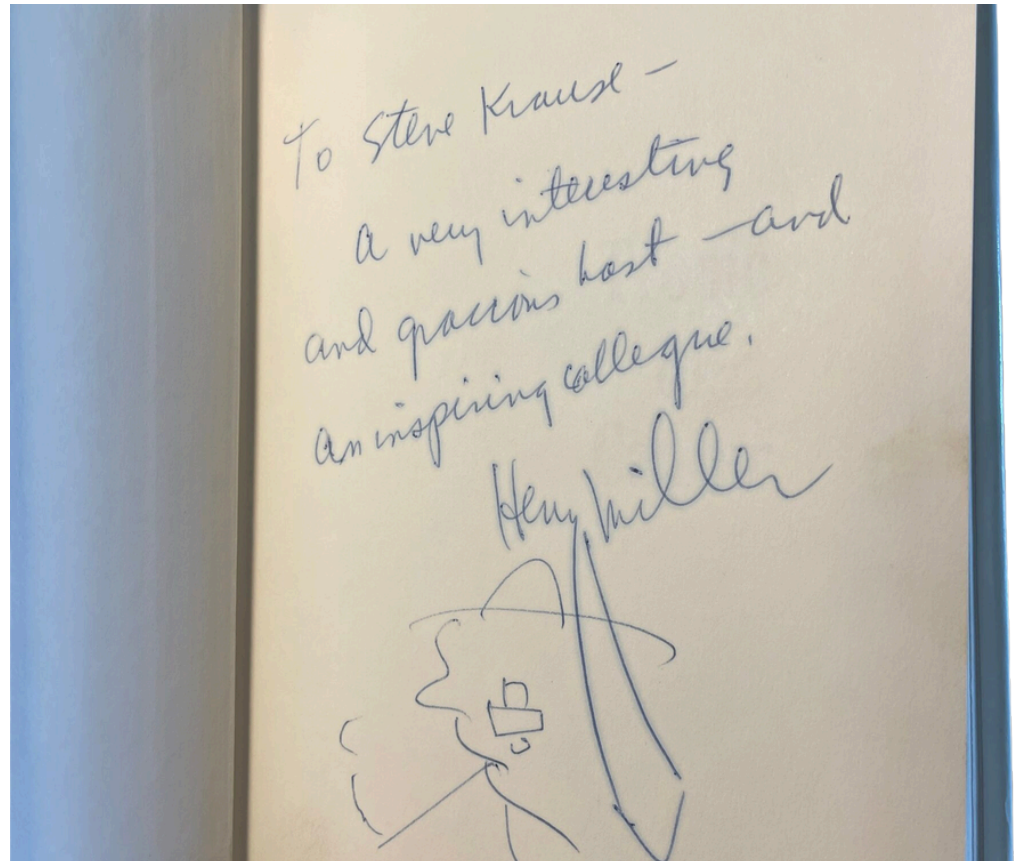 To Steve Krause –
a very interesting
and gracious host – and
an inspiring collegue.
Henry Miller